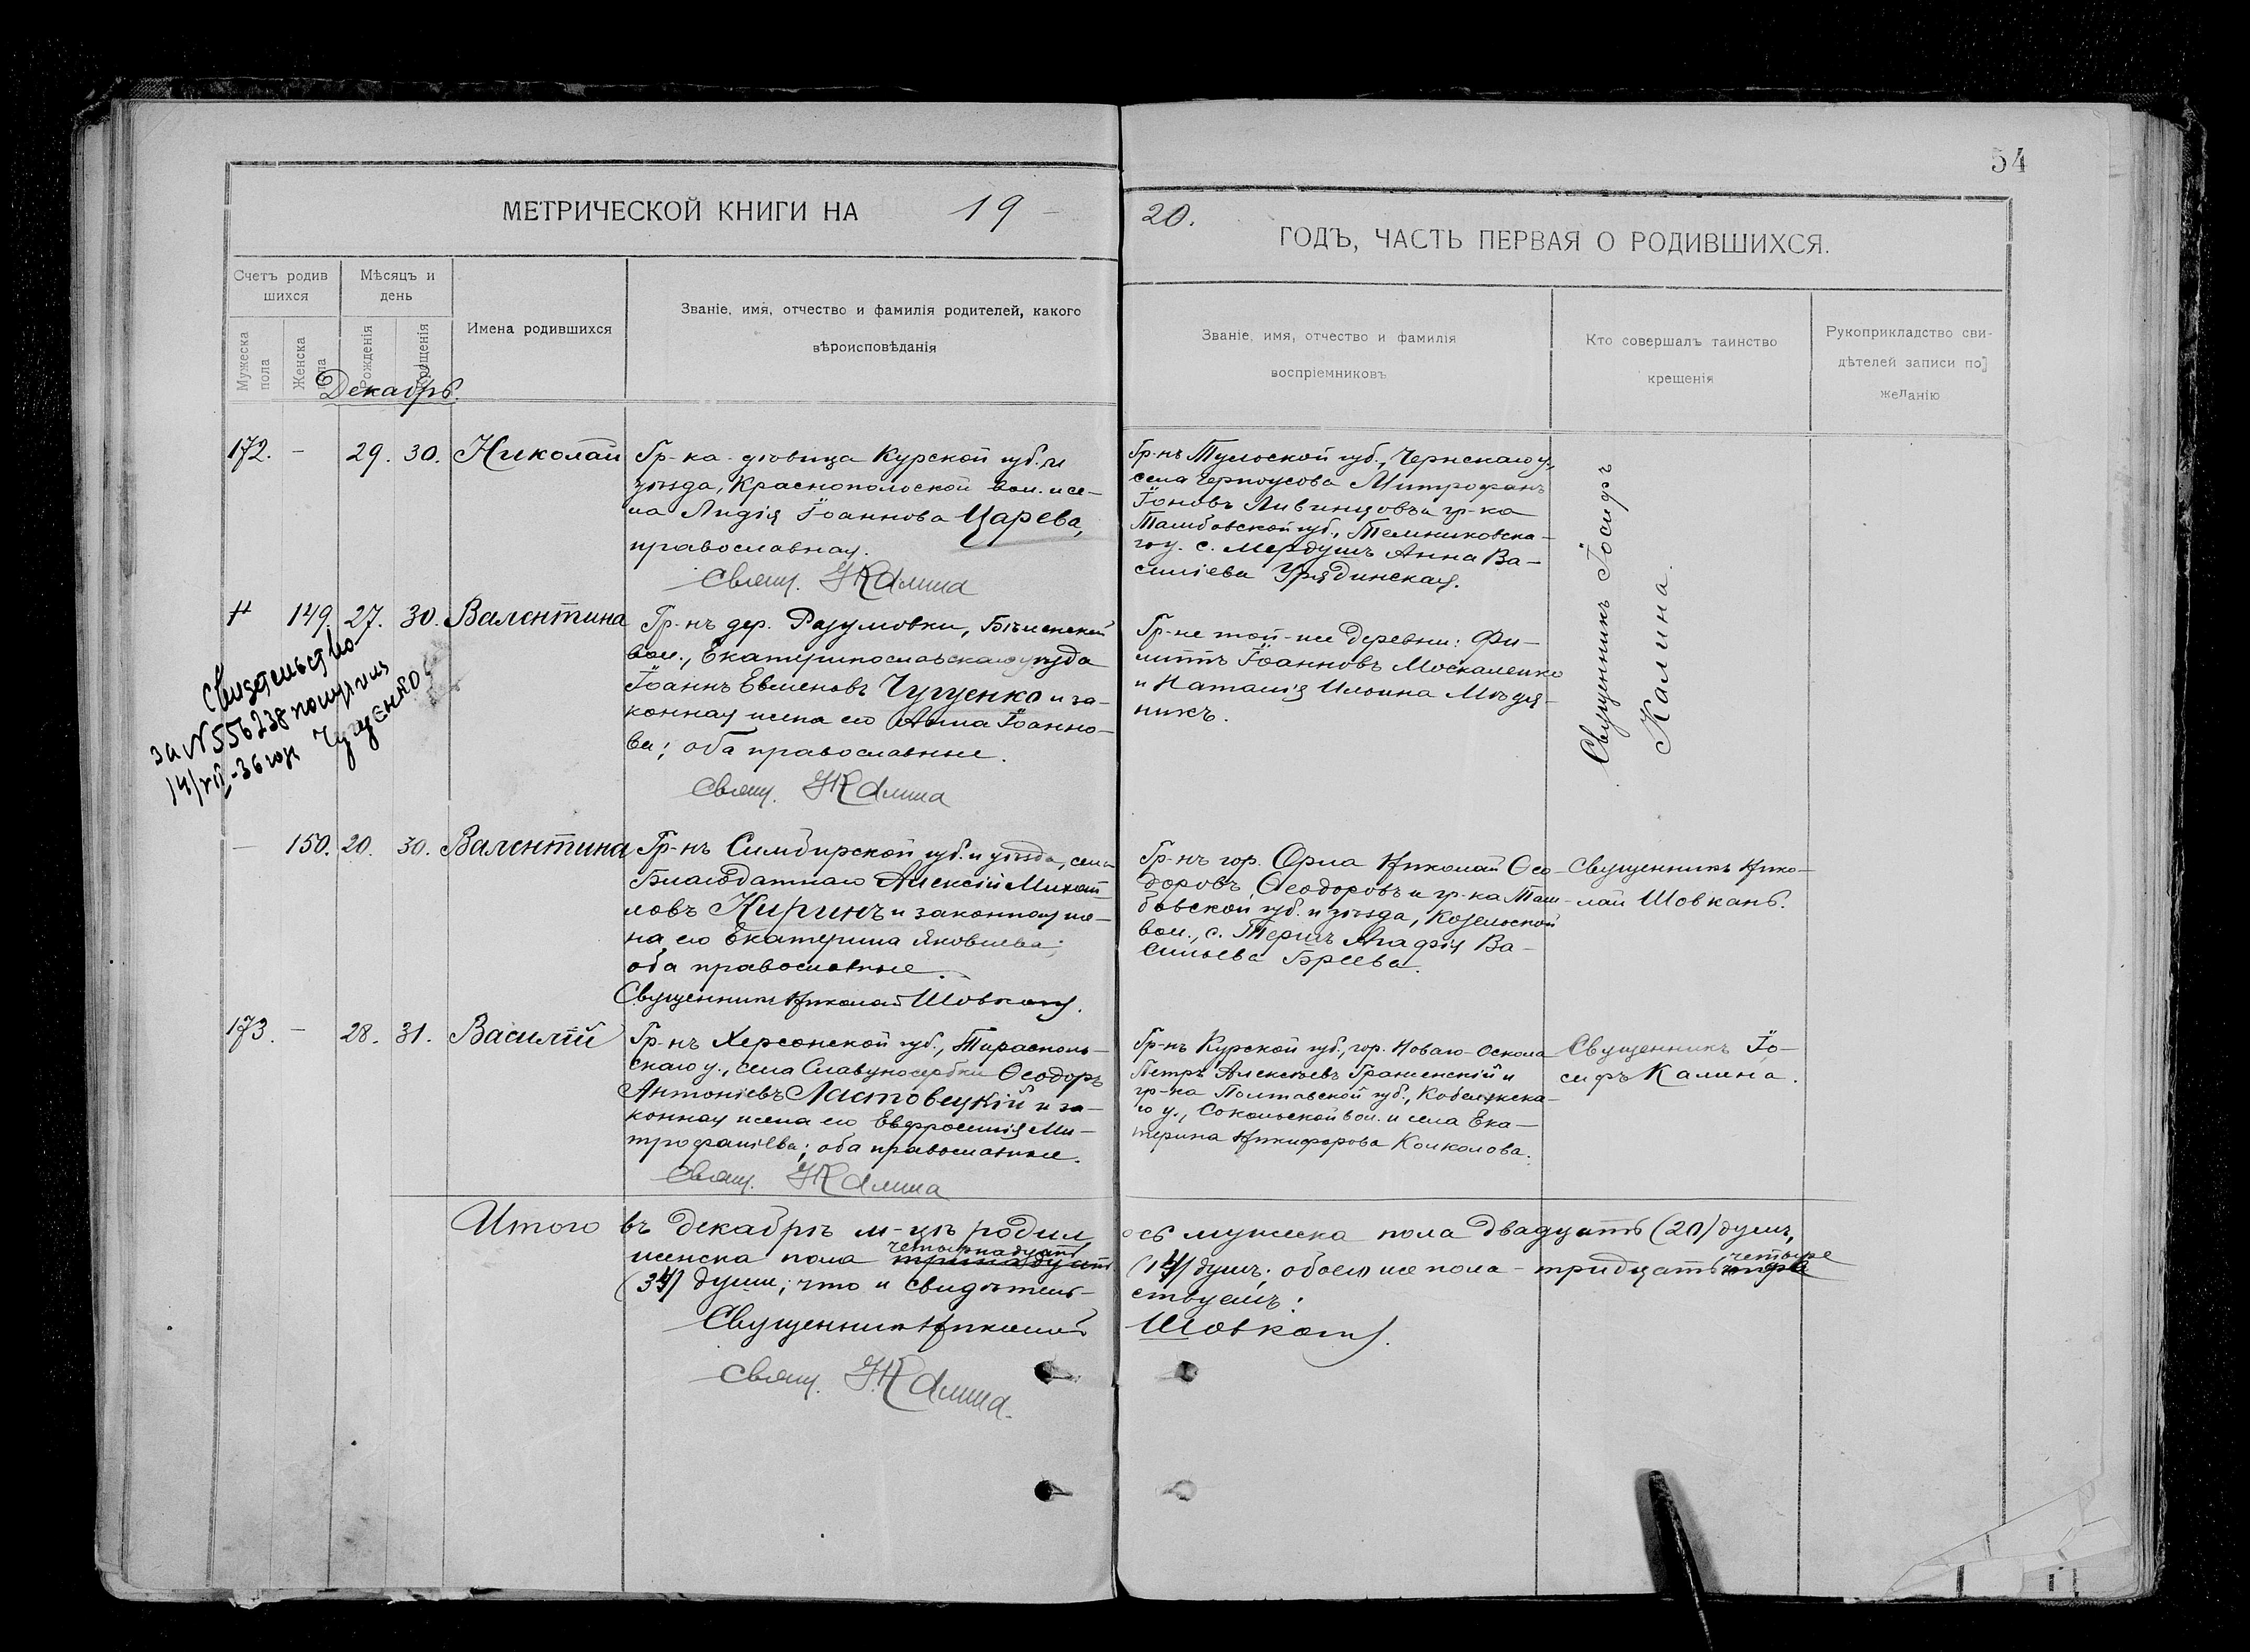 54
МЕТРИЧЕСКОЙ КНИГИ НА 19 –
20.
ГОДЪ, ЧАСТЬ ПЕРВАЯ О РОДИВШИХСЯ.
Счетъ родив
шихся
Мѣсяцъ и
день
Мужеска
пола
Женска
пола
Рожденія
Крещенія
Имена родившихся
Званіе, имя, отчество и фамилія родителей, какого
вѣроисповѣданія
Званіе, имя, отчество и фамилія
воспріемниковъ
Кто совершалъ таинство
крещенія
Рукоприкладство сви-
дѣтелей записи по
желанію
Декабрь.
172. – 29. 30. Николай
Гр-ка дѣвица Курской губ. и
уѣзда, Краснополоской вол. и се-
ла Лидія Іоаннова Царева,
православная.
Свящ. І Калина
Гр-нъ Тульской губ., Чернскаго у.,
села Черноусова Митрофанъ
Іоновъ Ливинцовъ и гр-ка
Тамбовской губ., Темниковска-
го у. с. Мердушъ Анна Ва-
силіева Урядинская.
Священникъ Іосифъ
Калина.
149. 27. 30. Валентина
Гр-нъ дер. Разумовки, Бѣленькой
вол., Екатеринославскаго уѣзда
Іоаннъ Евменовъ Чугуенко и за-
конная жена его Анна Іоанно-
ва; оба православные.
Свящ. І Калина
Гр-не той-же деревни: Фи-
липпъ Іоанновъ Москаленко
и Наталія Ильина
никъ.
Свидетельство
за № 556238 получил
14/VII-36 год Чугуенко
– 150. 20. 30. Валентина
Гр-нъ Симбирской губ. и уѣзда, села
Благодатнаго Алексій Михай-
ловъ Киринъ и законная же-
на его Екатерина Яковлева;
оба православные.
Священникъ Николай Шовкань.
Гр-нъ гор. Орла Николай Ѳео-
доровъ Ѳеодоровъ и гр-ка Там-
бовской губ. и уѣзда, Козельской
вол., с. Агафія Ва-
сильева Бреева.
Священникъ Нико-
лай Шовкань.
173. – 28. 31. Василій
Гр-нъ Херсонской губ., Тирасполь-
скаго у., села Славяносербки Ѳеодоръ
Антоніевъ Ластовецкій и за-
конная жена его Евфросинія Ми-
трофаніева; оба православные.
Свящ. І Калина
Гр-нъ Курской губ., гор. Новаго-Оскола
Петръ Алексѣевъ и
гр-ка Полтавской губ., Кобелякска-
го у., Сокольской вол. и села Ека-
терина Никифорова Колколова.
Священникъ Іо-
сифъ Калина.
Итого въ декабрѣ м-цѣ родил ось мужеска пола двадцать (20) душъ,
четырнадцать четыре
женска пола тринадцать (14) душъ; обоего же пола – тридцать три
(34) души; что и свидѣтель-ствуемъ:
Священникъ Николай Шовкань.
Свящ. І. Калина.